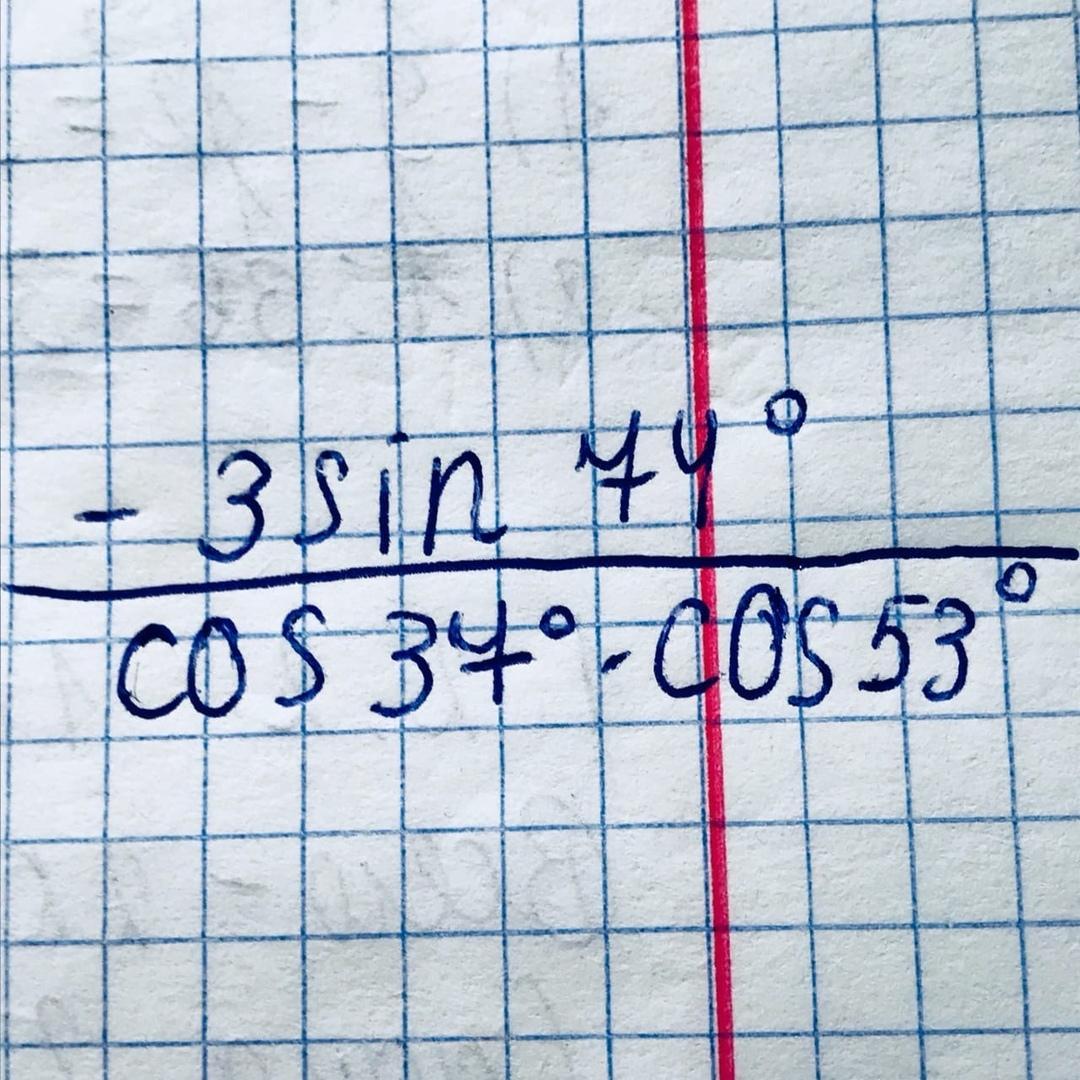 - 3 sin 74°
cos 37° · cos 53°